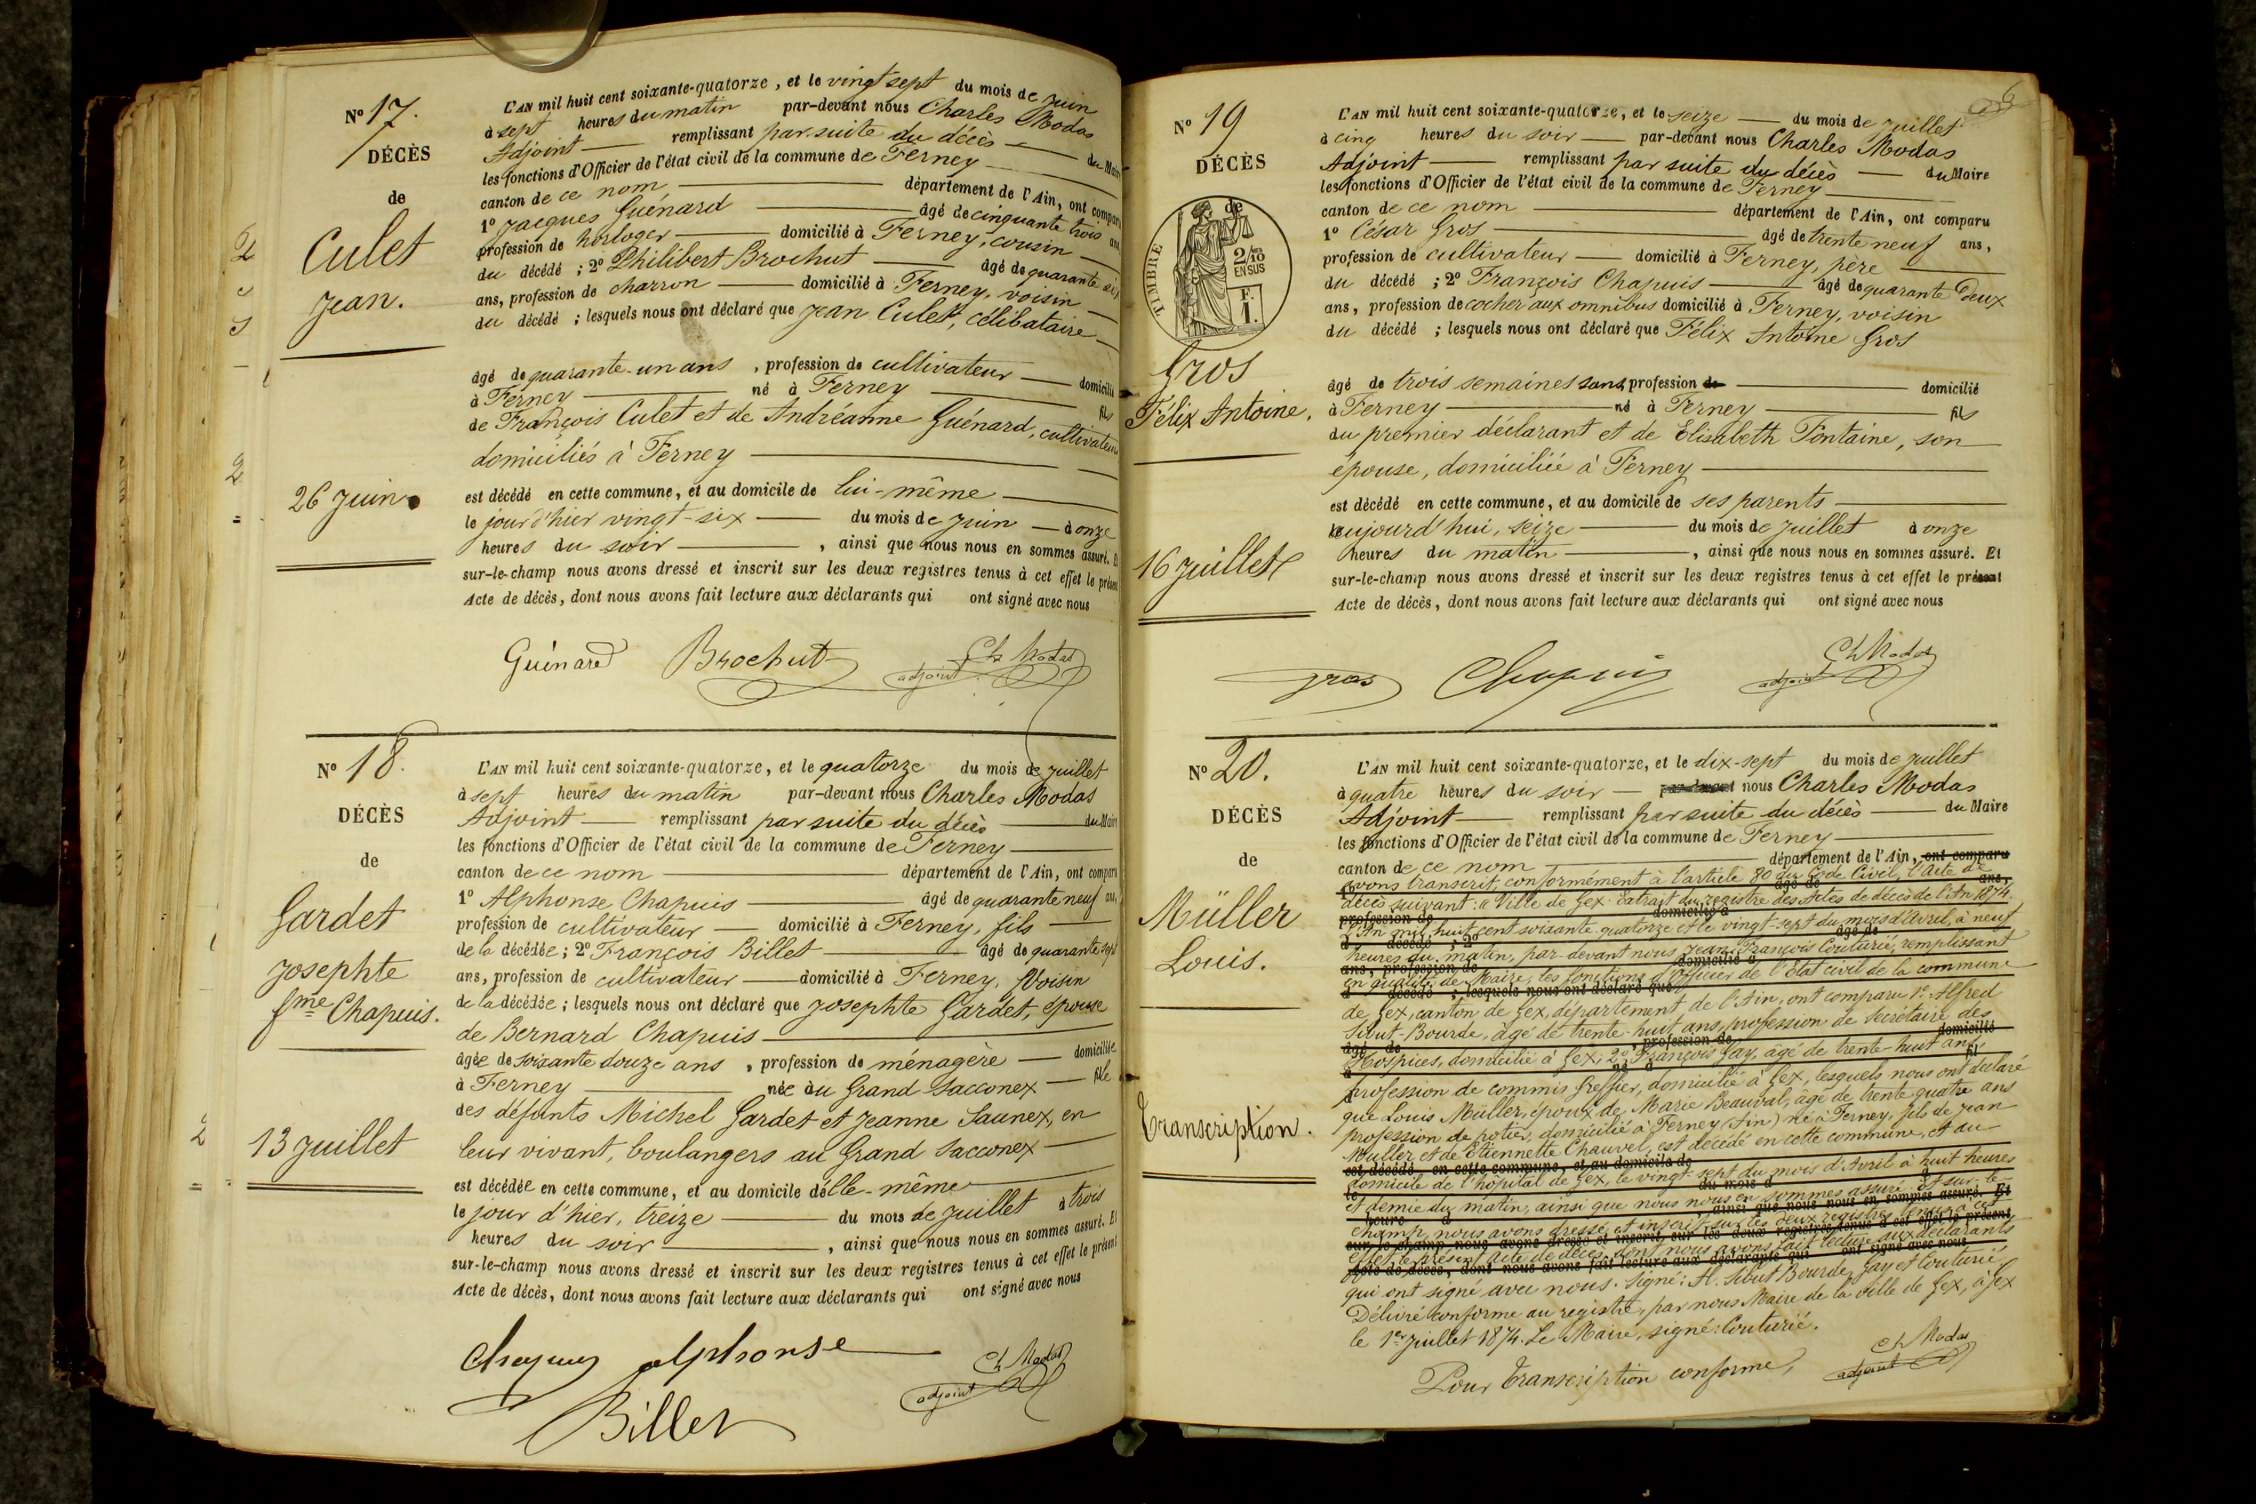 Nº 17.
DÉCÈS
de
Culet
Jean.
26 Juin
L'AN mil huit cent soixante-quatorze, et le vingt sept du mois de Juin
à sept heures du matin par-devant nous Charles Modas
Adjoint remplissant par suite du décès du Maire
les fonctions d'Officier de l'état civil de la commune de Ferney
canton de ce nom département de l'Ain, ont comparu
1º Jacques Guénard âgé de cinquante trois ans
profession de horloger domicilié à Ferney, cousin
du décédé ; 2º Philibert Brochut âgé de quarante six
ans, profession de charron domicilié à Ferney, voisin
du décédé ; lesquels nous ont déclaré que Jean Culet, célibataire
âgé de quarante-un ans , profession de cultivateur domicilié
à Ferney né à Ferney fils
de François Culet et de Andréanne Guénard, cultivateurs
domiciliés à Ferney
est décédé en cette commune, et au domicile de lui-même
le jour d'hier vingt-six du mois de Juin à onze
heures du soir , ainsi que nous nous en sommes assuré. Et
sur-le-champ nous avons dressé et inscrit sur les deux registres tenus à cet effet le présent
Acte de décès, dont nous avons fait lecture aux déclarants qui ont signé avec nous
Guénard Brochut Ch Modas
adjoint
Nº 18.
DÉCÈS
de
Gardet
Josephte
fme Chapuis.
13 Juillet
L'AN mil huit cent soixante-quatorze, et le quatorze du mois de Juillet
à sept heures du matin par-devant nous Charles Modas
Adjoint remplissant par suite du décès du Maire
les fonctions d'Officier de l'état civil de la commune de Ferney
canton de ce nom département de l'Ain, ont comparu
1º Alphonse Chapuis âgé de quarante neuf ans,
profession de cultivateur domicilié à Ferney, fils
de la décédée ; 2º François Billet âgé de quarante sept
ans, profession de cultivateur domicilié à Ferney, Voisin
de la décédée ; lesquels nous ont déclaré que Josephte Gardet, épouse
de Bernard Chapuis
âgée de soixante douze ans , profession de ménagère domiciliée
à Ferney née au Grand Sacconex fille
des défunts Michel Gardet et Jeanne Saunex, en
leur vivant, boulangers au Grand Sacconex
est décédée en cette commune, et au domicile d'elle-même
le jour d'hier, treize du mois de Juillet à trois
heures du soir , ainsi que nous nous en sommes assuré. Et
sur-le-champ nous avons dressé et inscrit sur les deux registres tenus à cet effet le présent
Acte de décès, dont nous avons fait lecture aux déclarants qui ont signé avec nous
alphonse Ch Modas
adjoint
Billet
Nº 19
DÉCÈS
de
TIMBRE
2/10
EN SUS
F.
1.
Gros
Félix Antoine.
16 Juillet
L'AN mil huit cent soixante-quatorze, et le seize du mois de Juillet
à cinq heures du soir par-devant nous Charles Modas
Adjoint remplissant par suite du décès du Maire
les fonctions d'Officier de l'état civil de la commune de Ferney
canton de ce nom département de l'Ain, ont comparu
1º César Gros âgé de trente neuf ans,
profession de cultivateur domicilié à Ferney, père
du décédé ; 2º François Chapuis âgé de quarante deux
ans, profession de cocher aux omnibus domicilié à Ferney, voisin
du décédé ; lesquels nous ont déclaré que Félix Antoine Gros
âgé de trois semaines sans profession de domicilié
à Ferney né à Ferney fils
du premier déclarant et de Elisabeth Fontaine, son
épouse, domiciliée à Ferney
est décédé en cette commune, et au domicile de ses parents
aujourd'hui, seize du mois de Juillet à onze
heures du matin , ainsi que nous nous en sommes assuré. Et
sur-le-champ nous avons dressé et inscrit sur les deux registres tenus à cet effet le présent
Acte de décès, dont nous avons fait lecture aux déclarants qui ont signé avec nous
gros Chapuis Ch Modas
adjoint
Nº 20.
DÉCÈS
de
Müller
Louis.
Transcription.
L'AN mil huit cent soixante-quatorze, et le dix-sept du mois de Juillet
à quatre heures du soir par-devant nous Charles Modas
Adjoint remplissant par suite du décès du Maire
les fonctions d'Officier de l'état civil de la commune de Ferney
canton de ce nom département de l'Ain, ont comparu
avons transcrit, conformément à l'article 80 du Code Civil, l'Acte de
décès suivant: « Ville de Gex. Extrait du registre des Actes de décès de l'An 1874.
L'An mil huit cent soixante-quatorze et le vingt-sept du mois d'Avril, à neuf
heures du matin, par-devant nous Jean François Couturié, remplissant
en qualité de Maire, les fonctions d'Officier de l'Etat civil de la commune
de Gex, canton de Gex, département de l'Ain, ont comparu 1º Alfred
Sibut-Bourde, âgé de trente-huit ans, profession de Secrétaire des
Hospices, domicilié à Gex; 2º François Gay, âgé de trente-huit ans,
profession de commis Greffier, domicilié à Gex, lesquels nous ont déclaré
que Louis Müller, époux de Marie Beauval, âgé de trente quatre ans
profession de potier, domicilié à Ferney (Ain) né à Ferney, fils de Jean
Müller et de Etiennette Chauvel, est décédé en cette commune, et au
domicile de l'hôpital de Gex, le vingt-sept du mois d'Avril à huit heures
et demie du matin, ainsi que nous nous en sommes assuré. Et sur-le-
champ nous avons dressé et inscrit sur les deux registres tenus à cet
effet le présent acte de décès, dont nous avons fait lecture aux déclarants
qui ont signé avec nous. Signé: A. Sibut Bourde, Gay et Couturié
Délivré conforme au registre, par nous Maire de la ville de Gex, à Gex
le 1er Juillet 1874. Le Maire, signé: Couturié.
Pour Transcription conforme, Ch Modas
adjoint